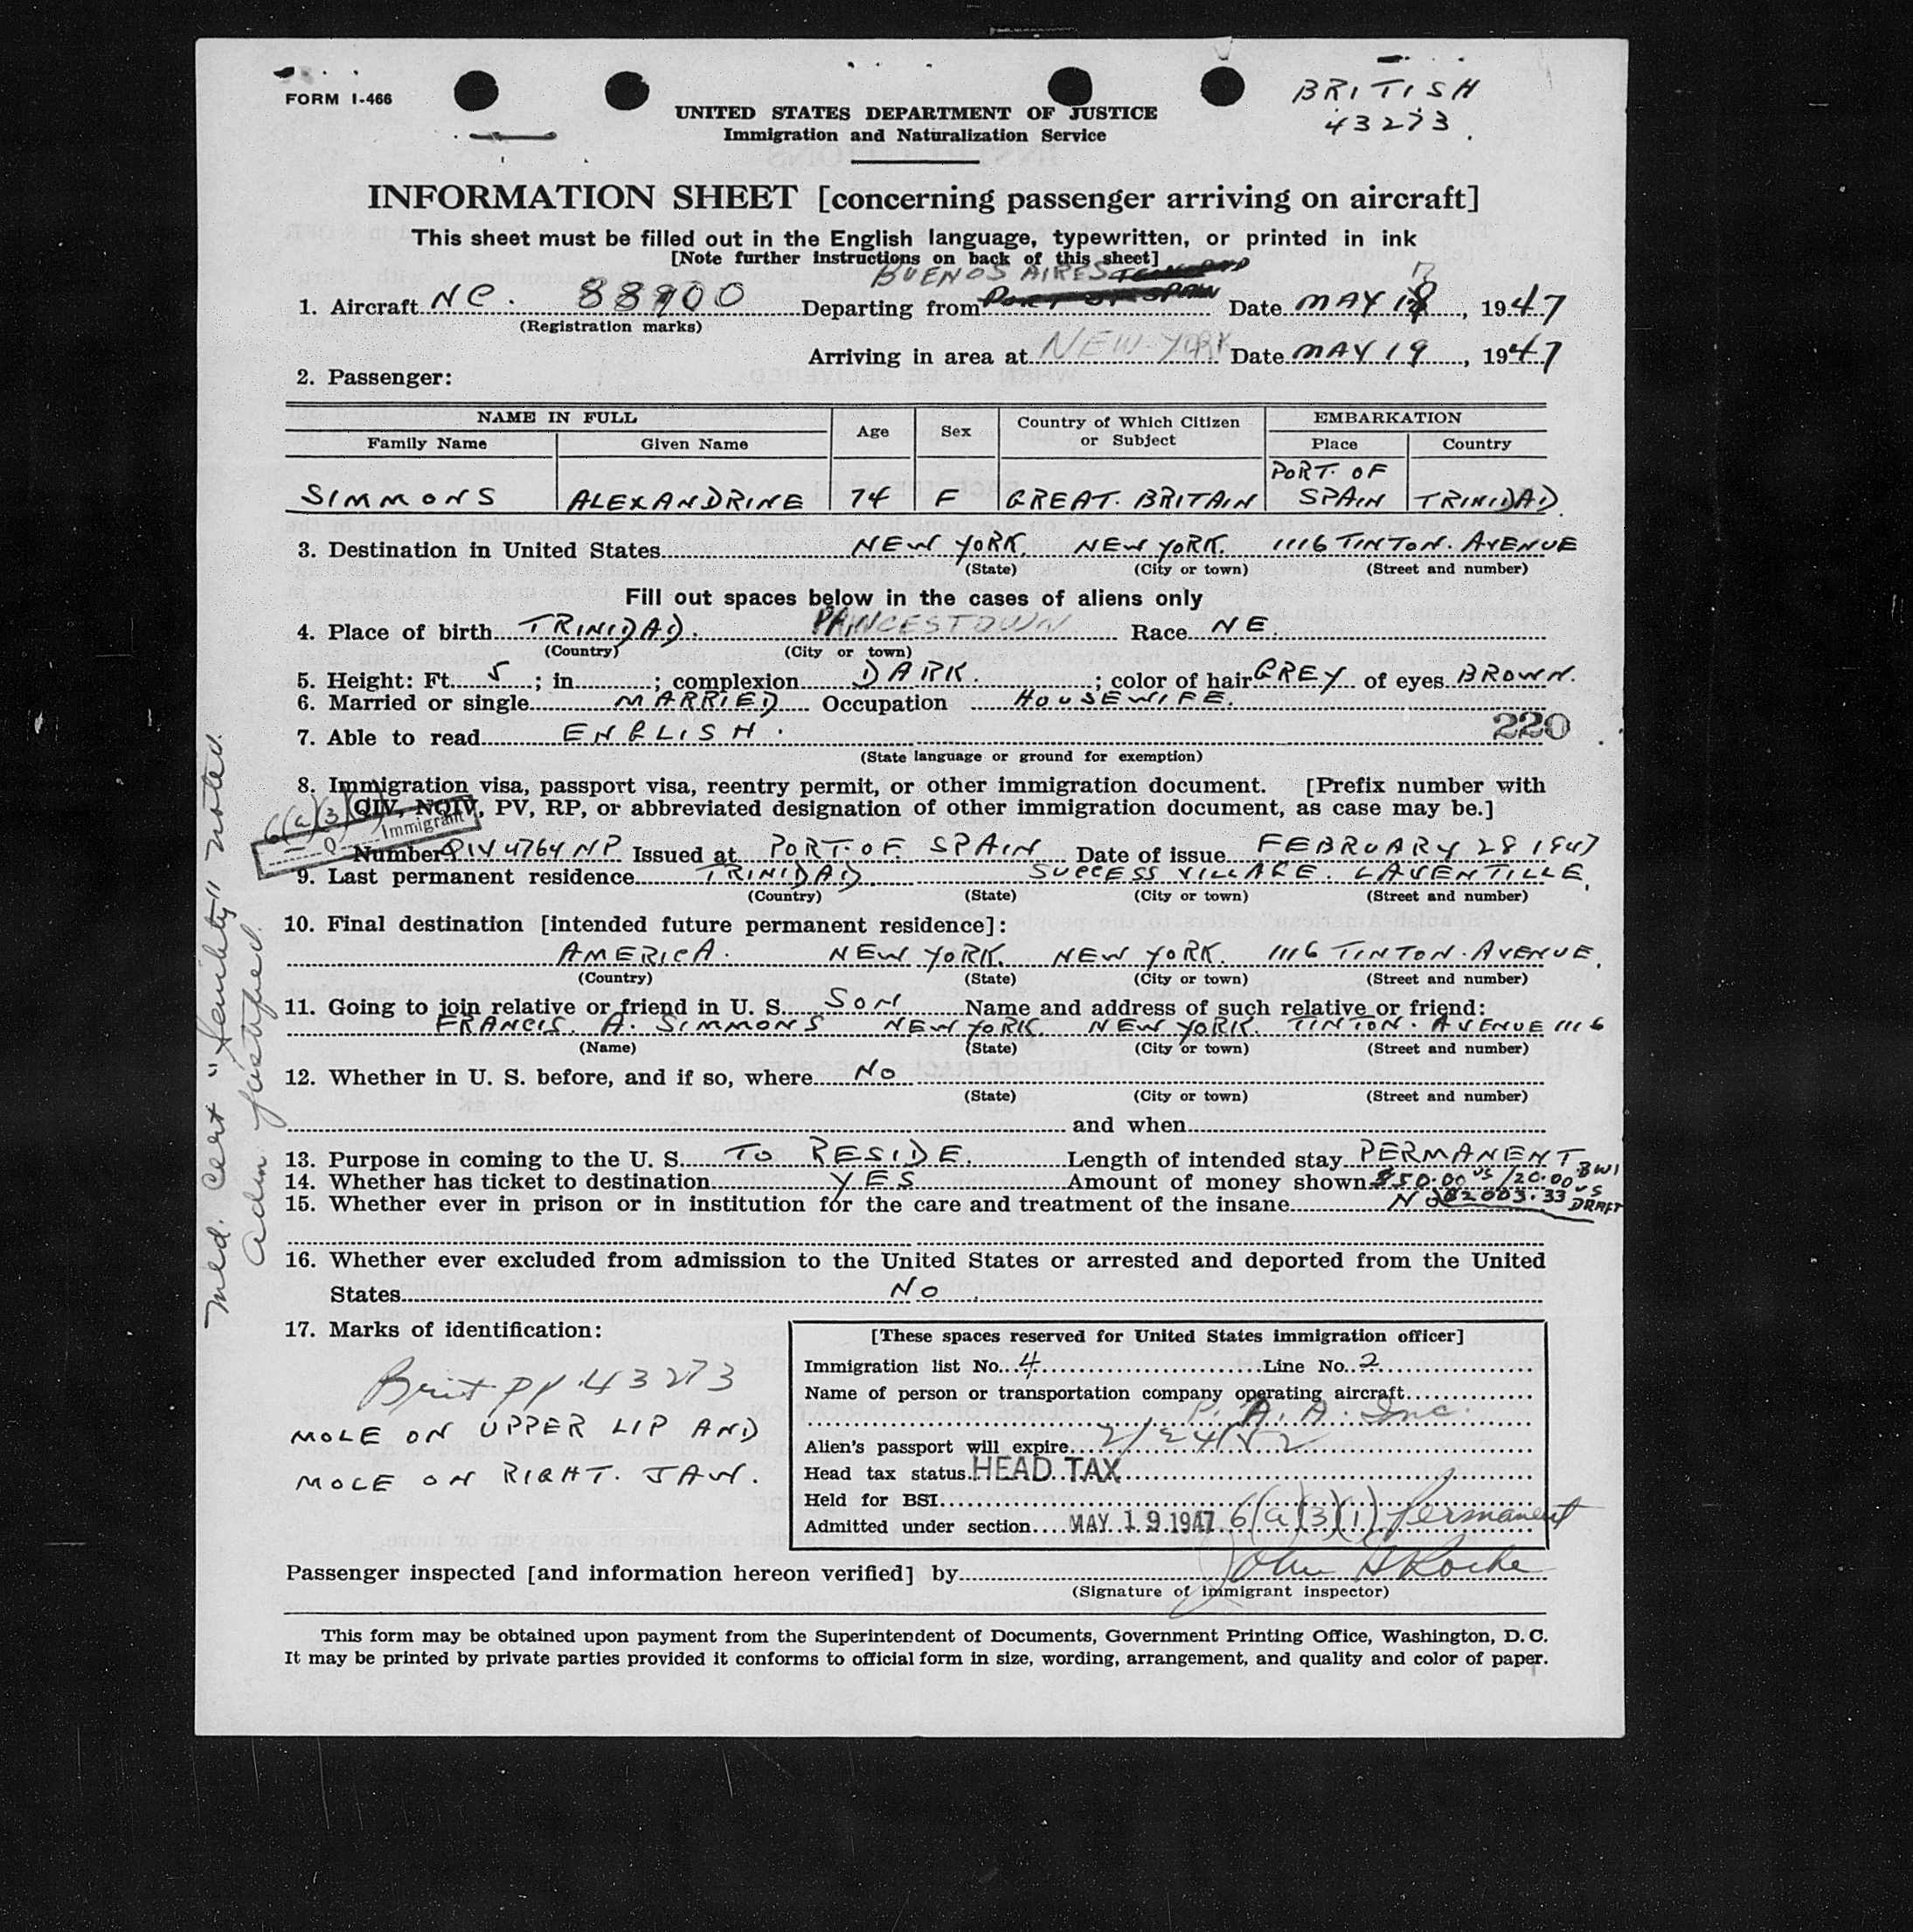 FORM I-466
BRITISH
43273.
UNITED STATES DEPARTMENT OF JUSTICE
Immigration and Naturalization Service
INFORMATION SHEET [concerning passenger arriving on aircraft]
This sheet must be filled out in the English language, typewritten, or printed in ink
[Note further instructions on back of this sheet]
BUENOS AIRES
1. Aircraft NC. 88900 Departing from PORT OF SPAIN Date MAY 18, 1947
(Registration marks)
Arriving in area at NEW YORK Date MAY 19, 1947
2. Passenger:
NAME IN FULL Age Sex Country of Which Citizen or Subject EMBARKATION
Family Name Given Name Place Country
SIMMONS ALEXANDRINE 74 F GREAT. BRITAIN PORT. OF SPAIN TRINIDAD.
3. Destination in United States NEW YORK. NEW YORK. 1116 TINTON. AVENUE
(State) (City or town) (Street and number)
Fill out spaces below in the cases of aliens only
4. Place of birth TRINIDAD. PRINCESTOWN Race NE.
(Country) (City or town)
5. Height: Ft. 5; in.; complexion DARK.; color of hair GREY of eyes BROWN.
6. Married or single MARRIED Occupation HOUSEWIFE.
7. Able to read ENGLISH. 220
(State language or ground for exemption)
8. Immigration visa, passport visa, reentry permit, or other immigration document. [Prefix number with
QIV, NQIV, PV, RP, or abbreviated designation of other immigration document, as case may be.]
6(a)(3)( )
Q Immigrant
Number QIV 4764 NP Issued at PORT. OF. SPAIN Date of issue FEBRUARY 28 1947
9. Last permanent residence TRINIDAD. SUCCESS VILLAGE. LAVENTILLE.
(Country) (State) (City or town) (Street and number)
10. Final destination [intended future permanent residence]:
AMERICA. NEW YORK. NEW YORK. 1116 TINTON. AVENUE.
(Country) (State) (City or town) (Street and number)
11. Going to join relative or friend in U. S. SON Name and address of such relative or friend:
FRANCIS. A. SIMMONS NEW YORK. NEW YORK. TINTON. AVENUE 1116
(Name) (State) (City or town) (Street and number)
12. Whether in U. S. before, and if so, where NO
(State) (City or town) (Street and number)
and when
13. Purpose in coming to the U. S. TO RESIDE. Length of intended stay PERMANENT
14. Whether has ticket to destination YES Amount of money shown $50.00 US / 20.00 BWI
15. Whether ever in prison or in institution for the care and treatment of the insane NO $2003.33 US DRAFT
16. Whether ever excluded from admission to the United States or arrested and deported from the United
States NO
17. Marks of identification:
Brit pp. 43273
MOLE ON UPPER LIP AND
MOLE ON RIGHT. JAW.
[These spaces reserved for United States immigration officer]
Immigration list No. 4 Line No. 2
Name of person or transportation company operating aircraft
P. A. A. Inc.
Alien's passport will expire 2/24/52
Head tax status HEAD TAX
Held for BSI
Admitted under section MAY 19 1947 6(a)(3)(1) Permanent
Passenger inspected [and information hereon verified] by John H Roche
(Signature of immigrant inspector)
This form may be obtained upon payment from the Superintendent of Documents, Government Printing Office, Washington, D. C.
It may be printed by private parties provided it conforms to official form in size, wording, arrangement, and quality and color of paper.
Med. Cert "Senility" noted.
Adm. justified.